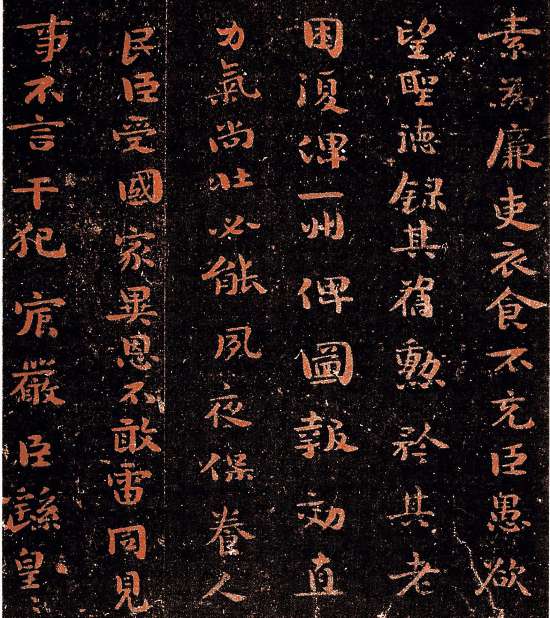 素為廉吏衣食不充臣愚欲
望聖德錄其舊勳矜其老
困復俾一州俾圖報効直
力氣尚壯必能夙夜保養人
民臣受國家異恩不敢雷同見
事不言干犯宸嚴臣繇皇〻